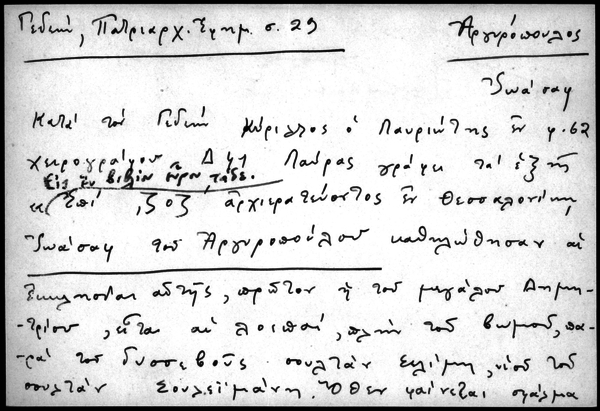 Γεδεών, Πατριαρχ. Ἐφημ. σ. 29
Ἀργυρόπουλος
Ἰωάσαφ
Κατά τόν Γεδεών Κύριλλος ὁ Λαυριώτης ἐν φ. 62
χειρογράφου Λαύρας γράφει τά ἑξῆς
Εἰς ἕν βιβλίον εὗρον τάδε.
"Ἐπί ͵ζοζ, ἀρχιερατεύοντος ἐν Θεσσαλονίκῃ
Ἰωάσαφ τοῦ Ἀργυροπούλου καθηλώθησαν αἱ
Ἐκκλησίαι αὐτῆς, πρῶτον ἡ τοῦ μεγάλου Δημη-
-τρίου, εἶται αἱ λοιπαί, πλήν τοῦ βωμοῦ, πα-
-ρά τοῦ δυσσεβοῦς σουλτάν Σελίμη, υἱοῦ τοῦ
σουλτάν Σουλεϊμάνη. Ὅθεν φαίνεται σφάλμα